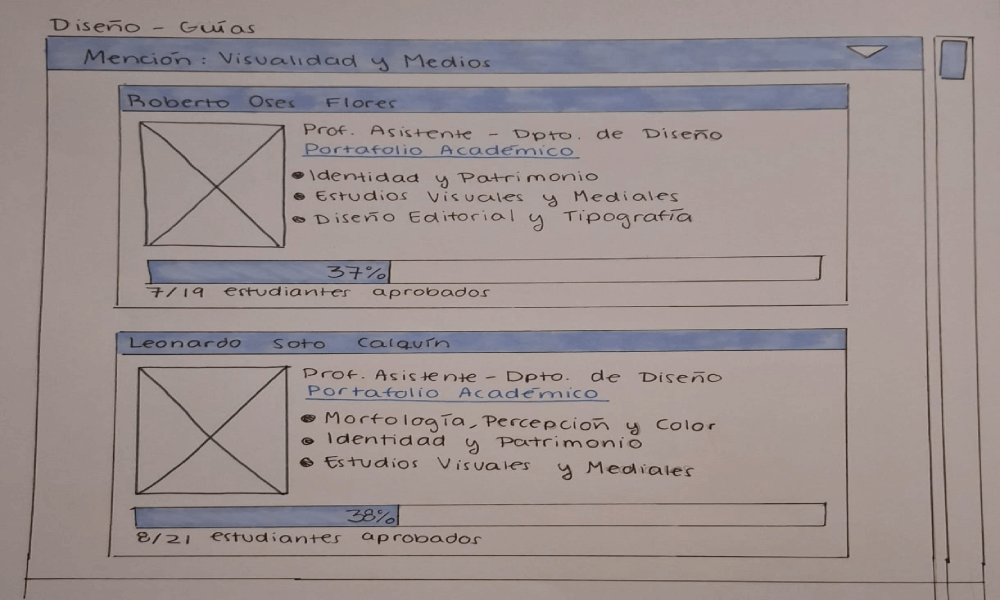 Diseño - Guías
Mención: Visualidad y Medios
Roberto Oses Flores
Prof. Asistente - Dpto. de Diseño
Portafolio Académico
• Identidad y Patrimonio
• Estudios Visuales y Mediales
• Diseño Editorial y Tipografía
37%
7/19 estudiantes aprobados
Leonardo Soto Calquín
Prof. Asistente - Dpto. de Diseño
Portafolio Académico
• Morfología, Percepción y Color
• Identidad y Patrimonio
• Estudios Visuales y Mediales
38%
8/21 estudiantes aprobados